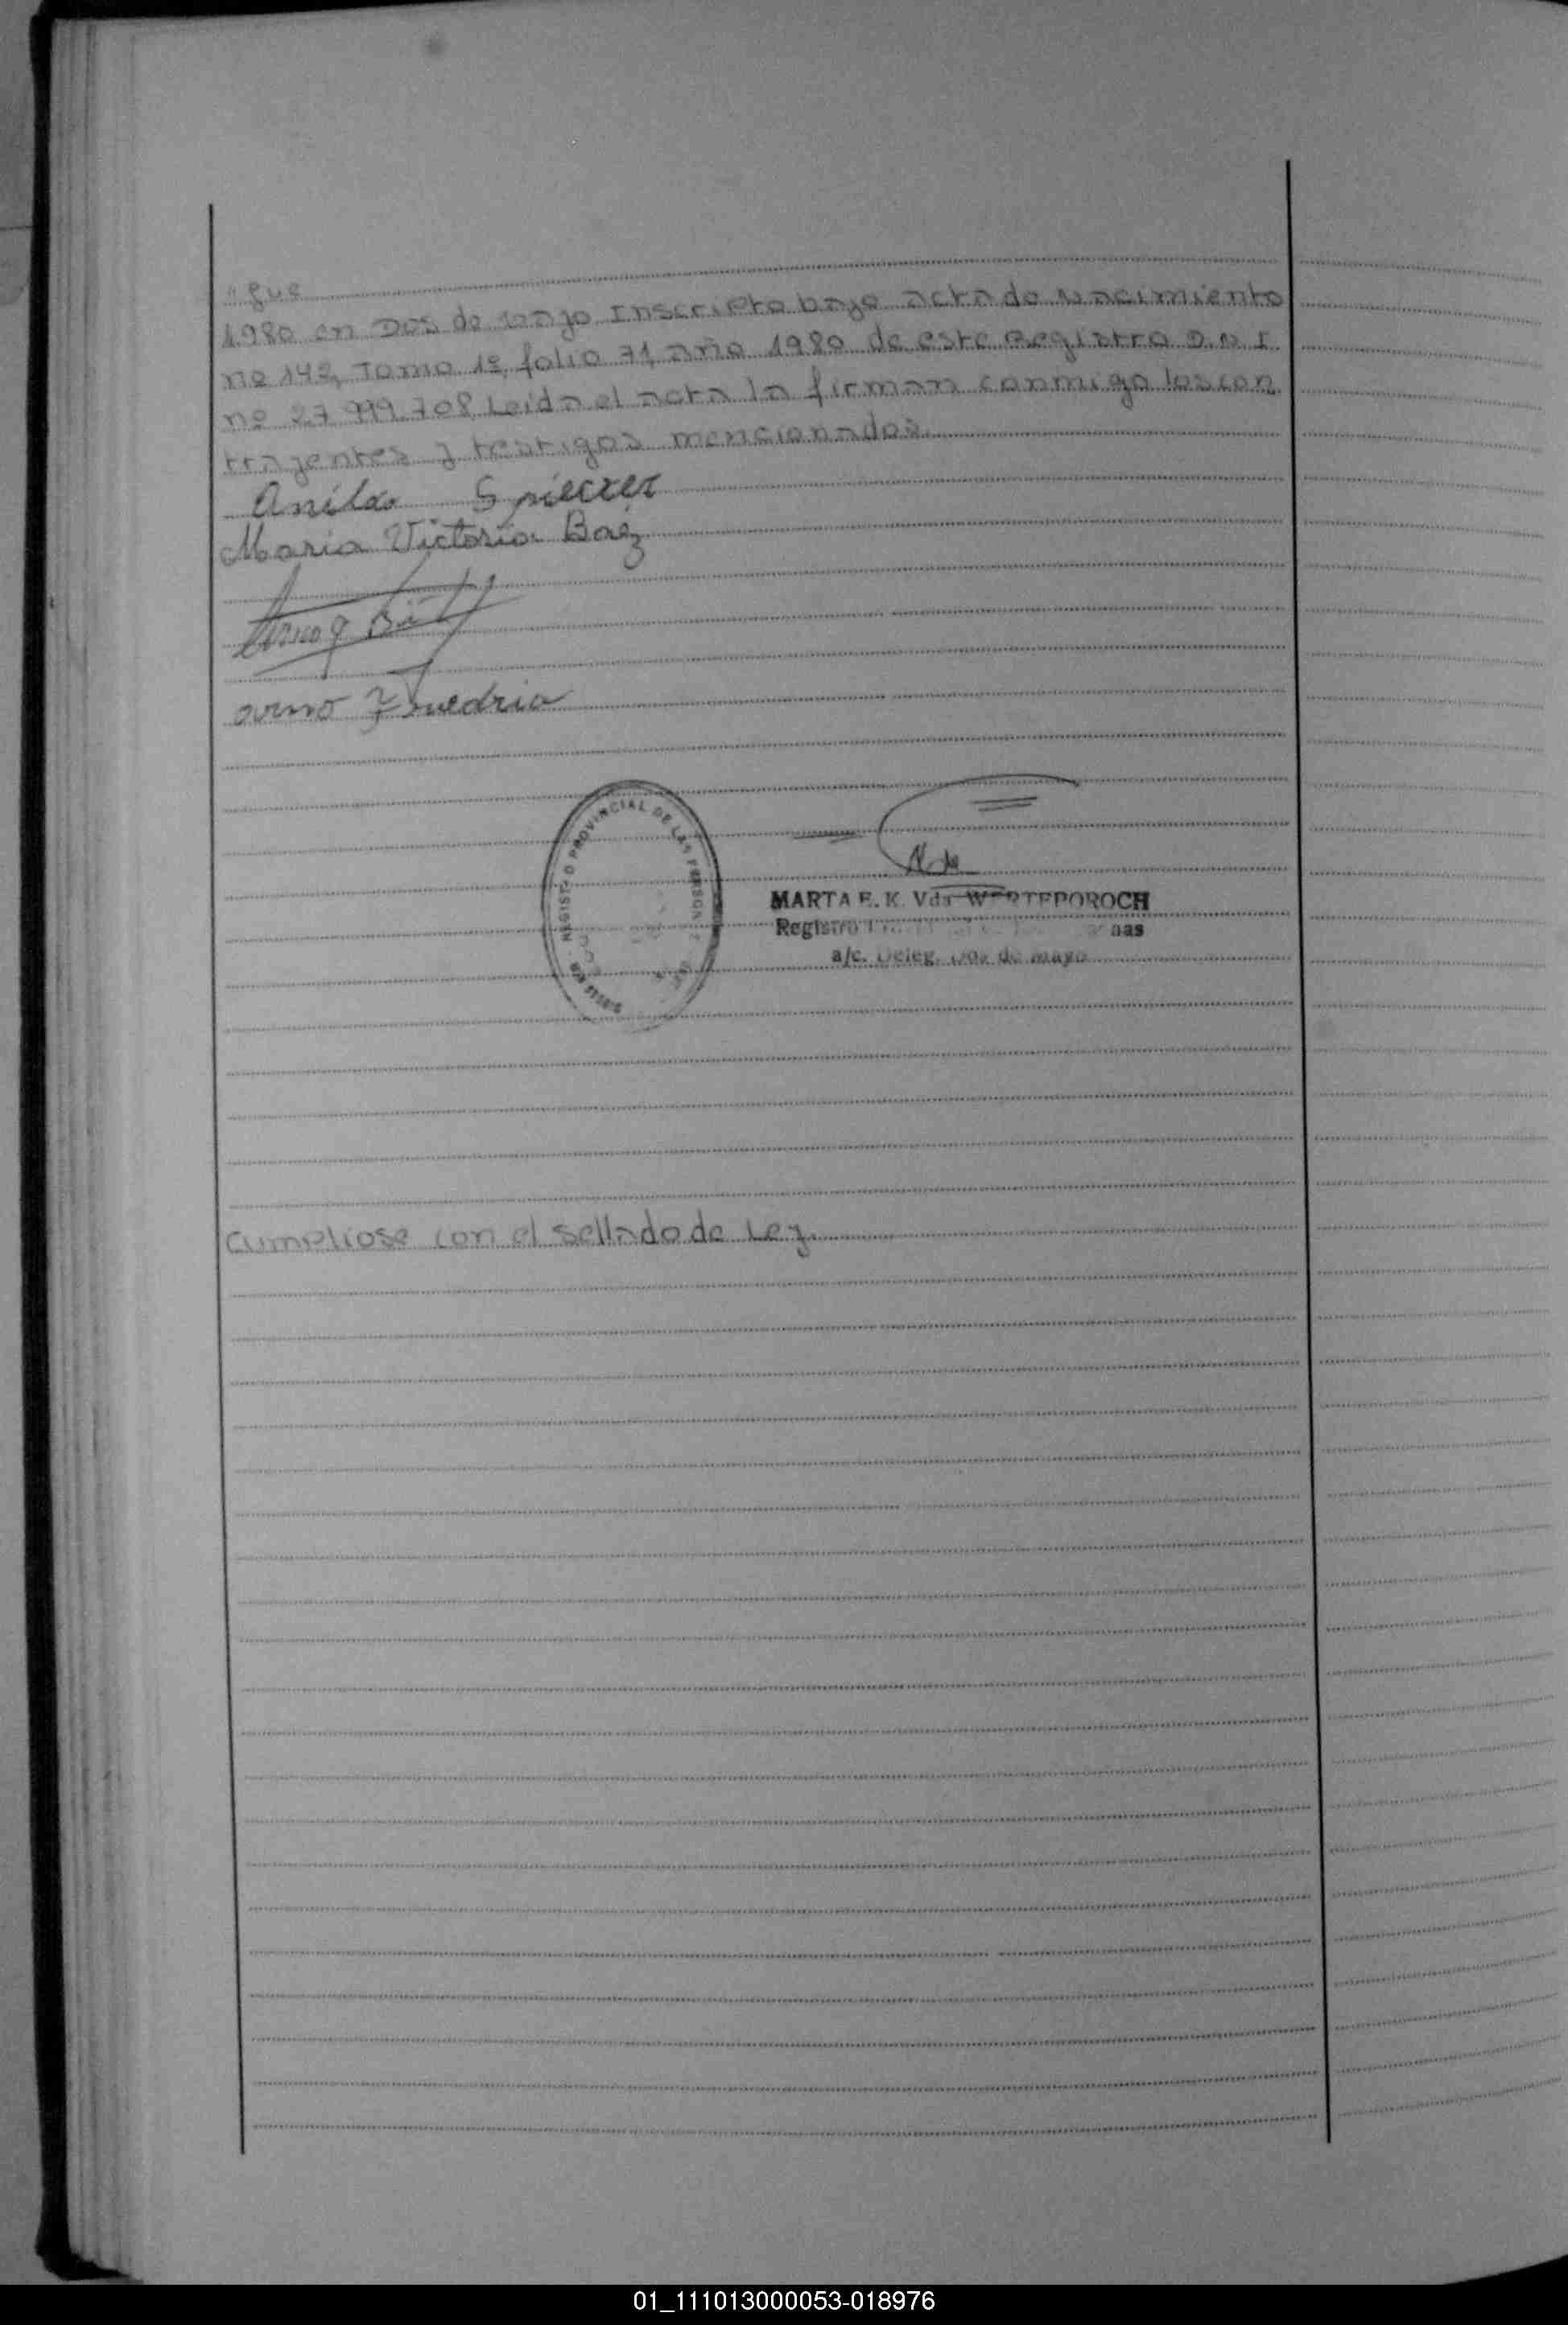 "gue
1980 en Dos de Mayo Inscripto bajo acta de Nacimiento
no 142, Tomo 1º, folio 71, año 1980 de este Registro D.N.I.
nº 27.999.708, Leida el acta la firman conmigo los con
trayentes y testigos mencionados.
Anilda
Maria Victoria Baez
arno
REGISTRO PROVINCIAL DE LAS PERSONAS
MARTA E. K. Vda WERTEPOROCH
Registro
a/c. Deleg. Dos de Mayo
Cumpliose con el sellado de Ley.
01_111013000053-018976